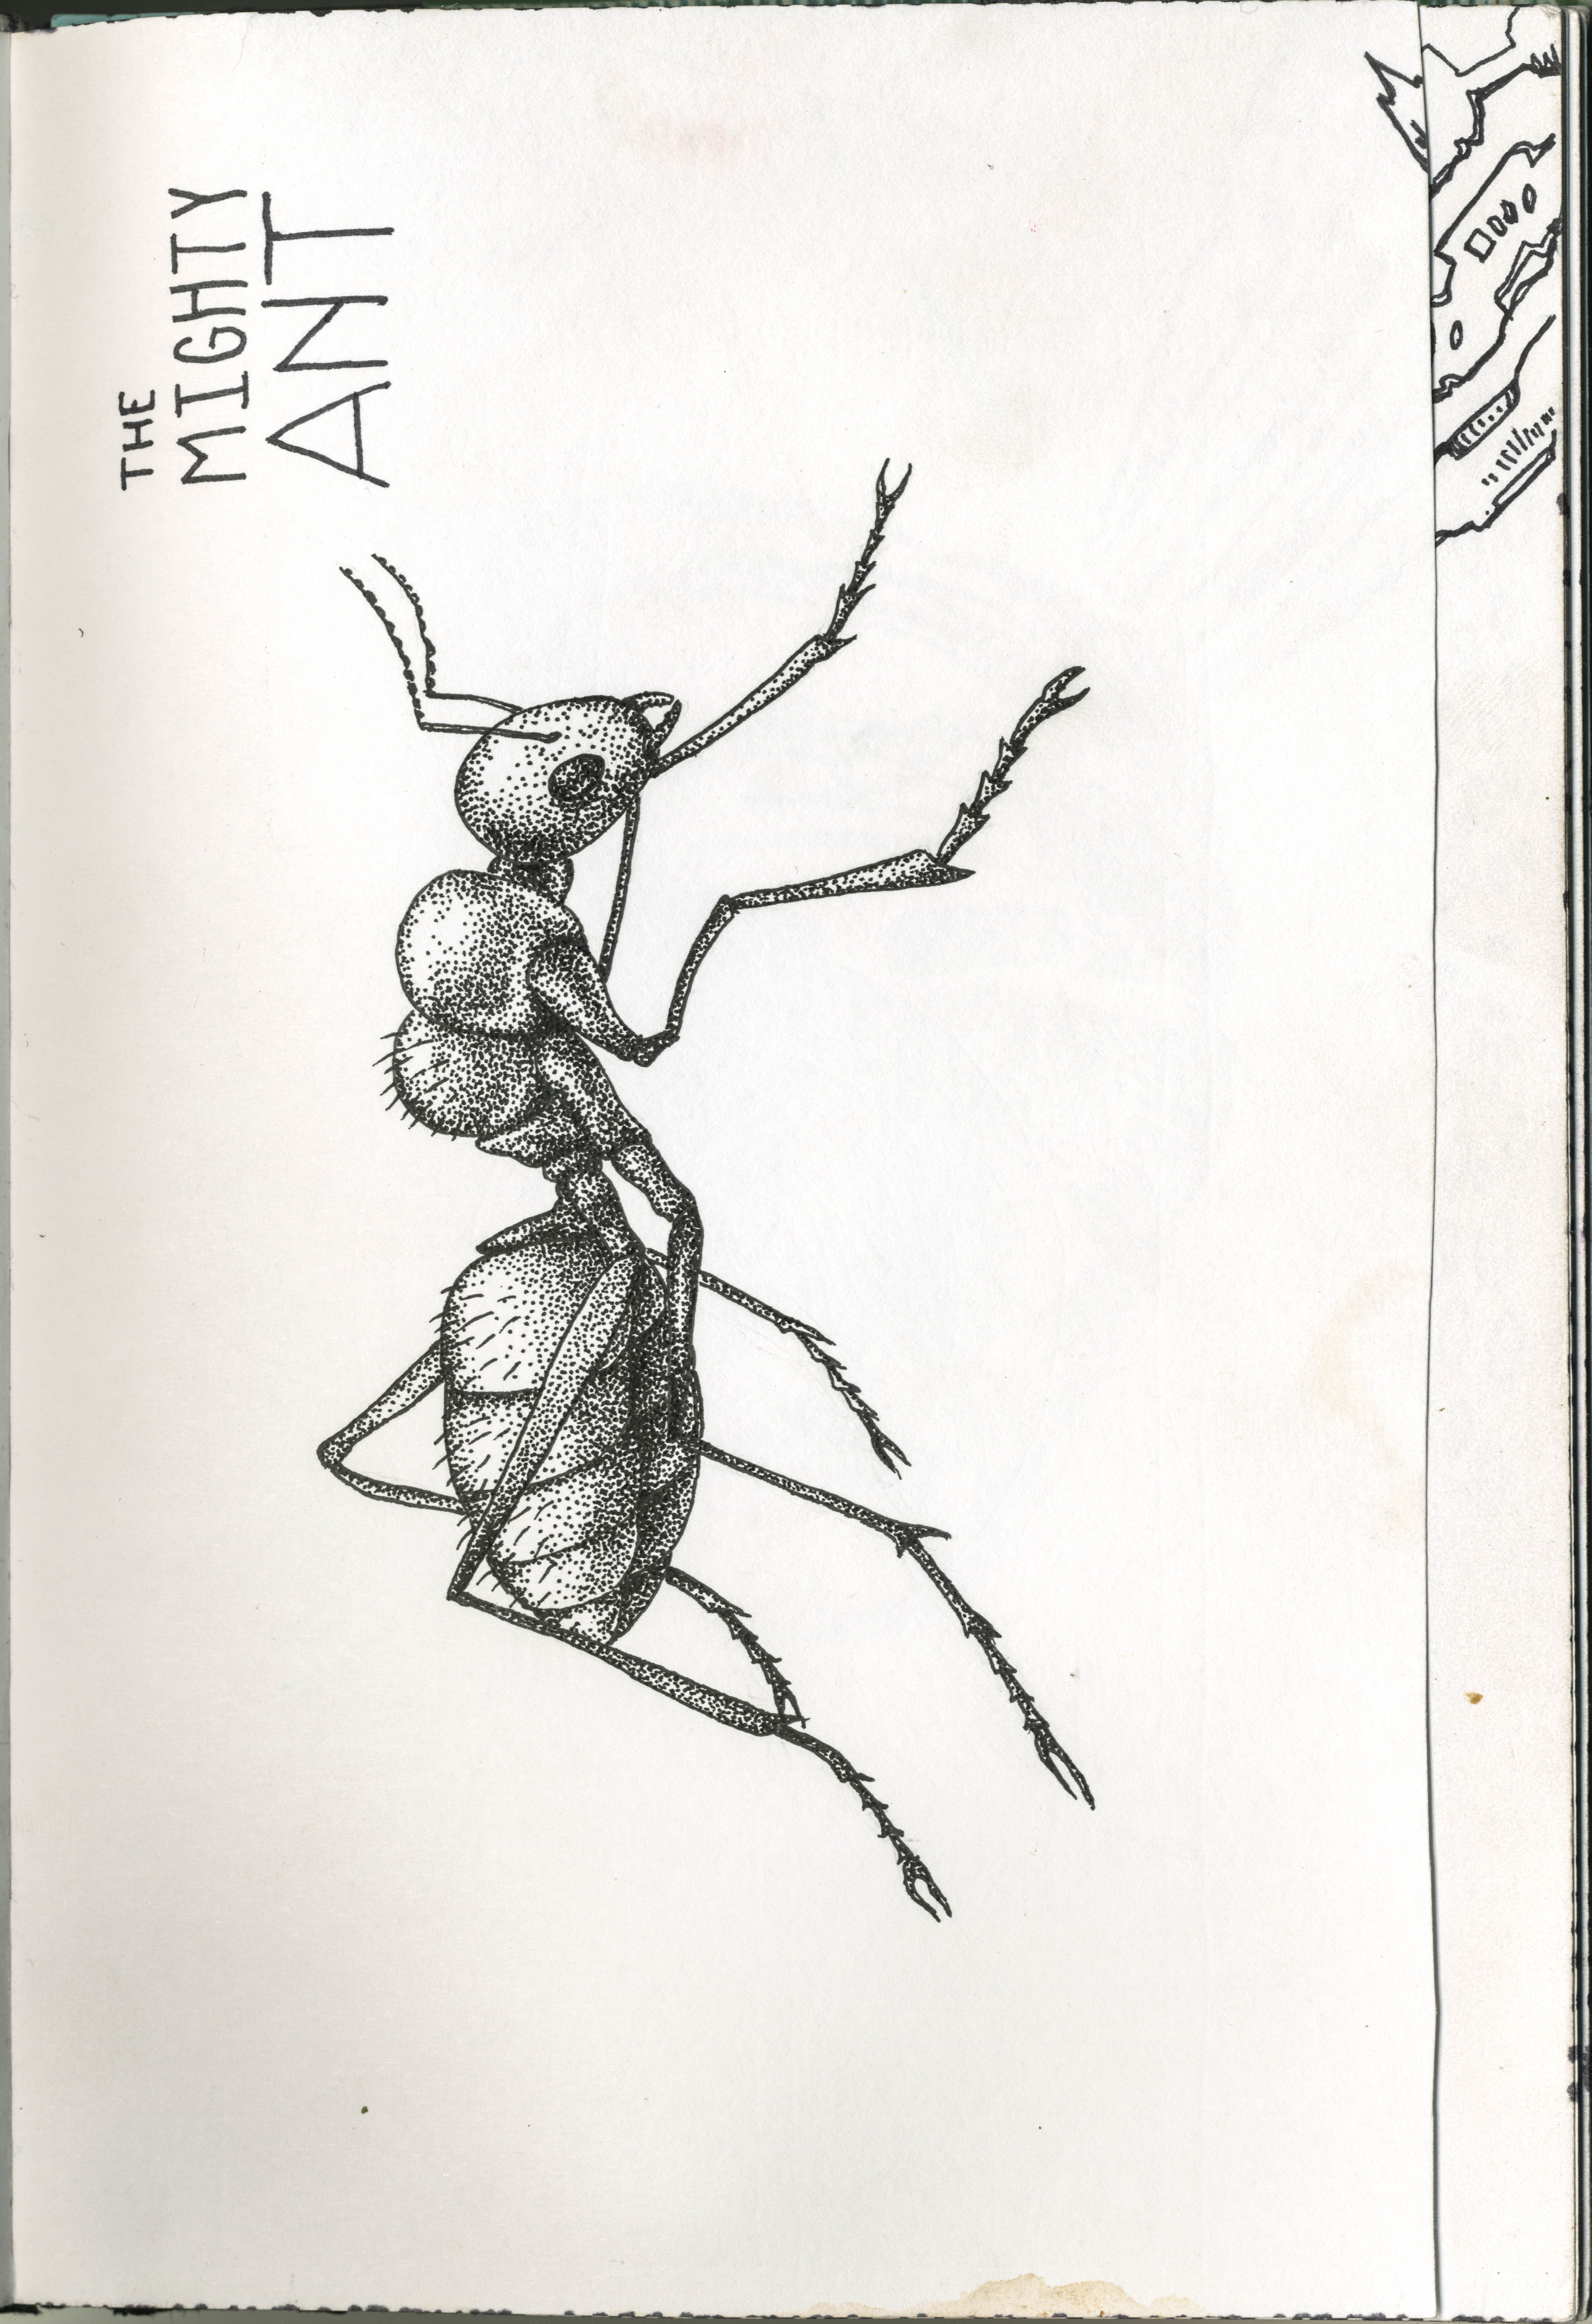 THE
MIGHTY
ANT